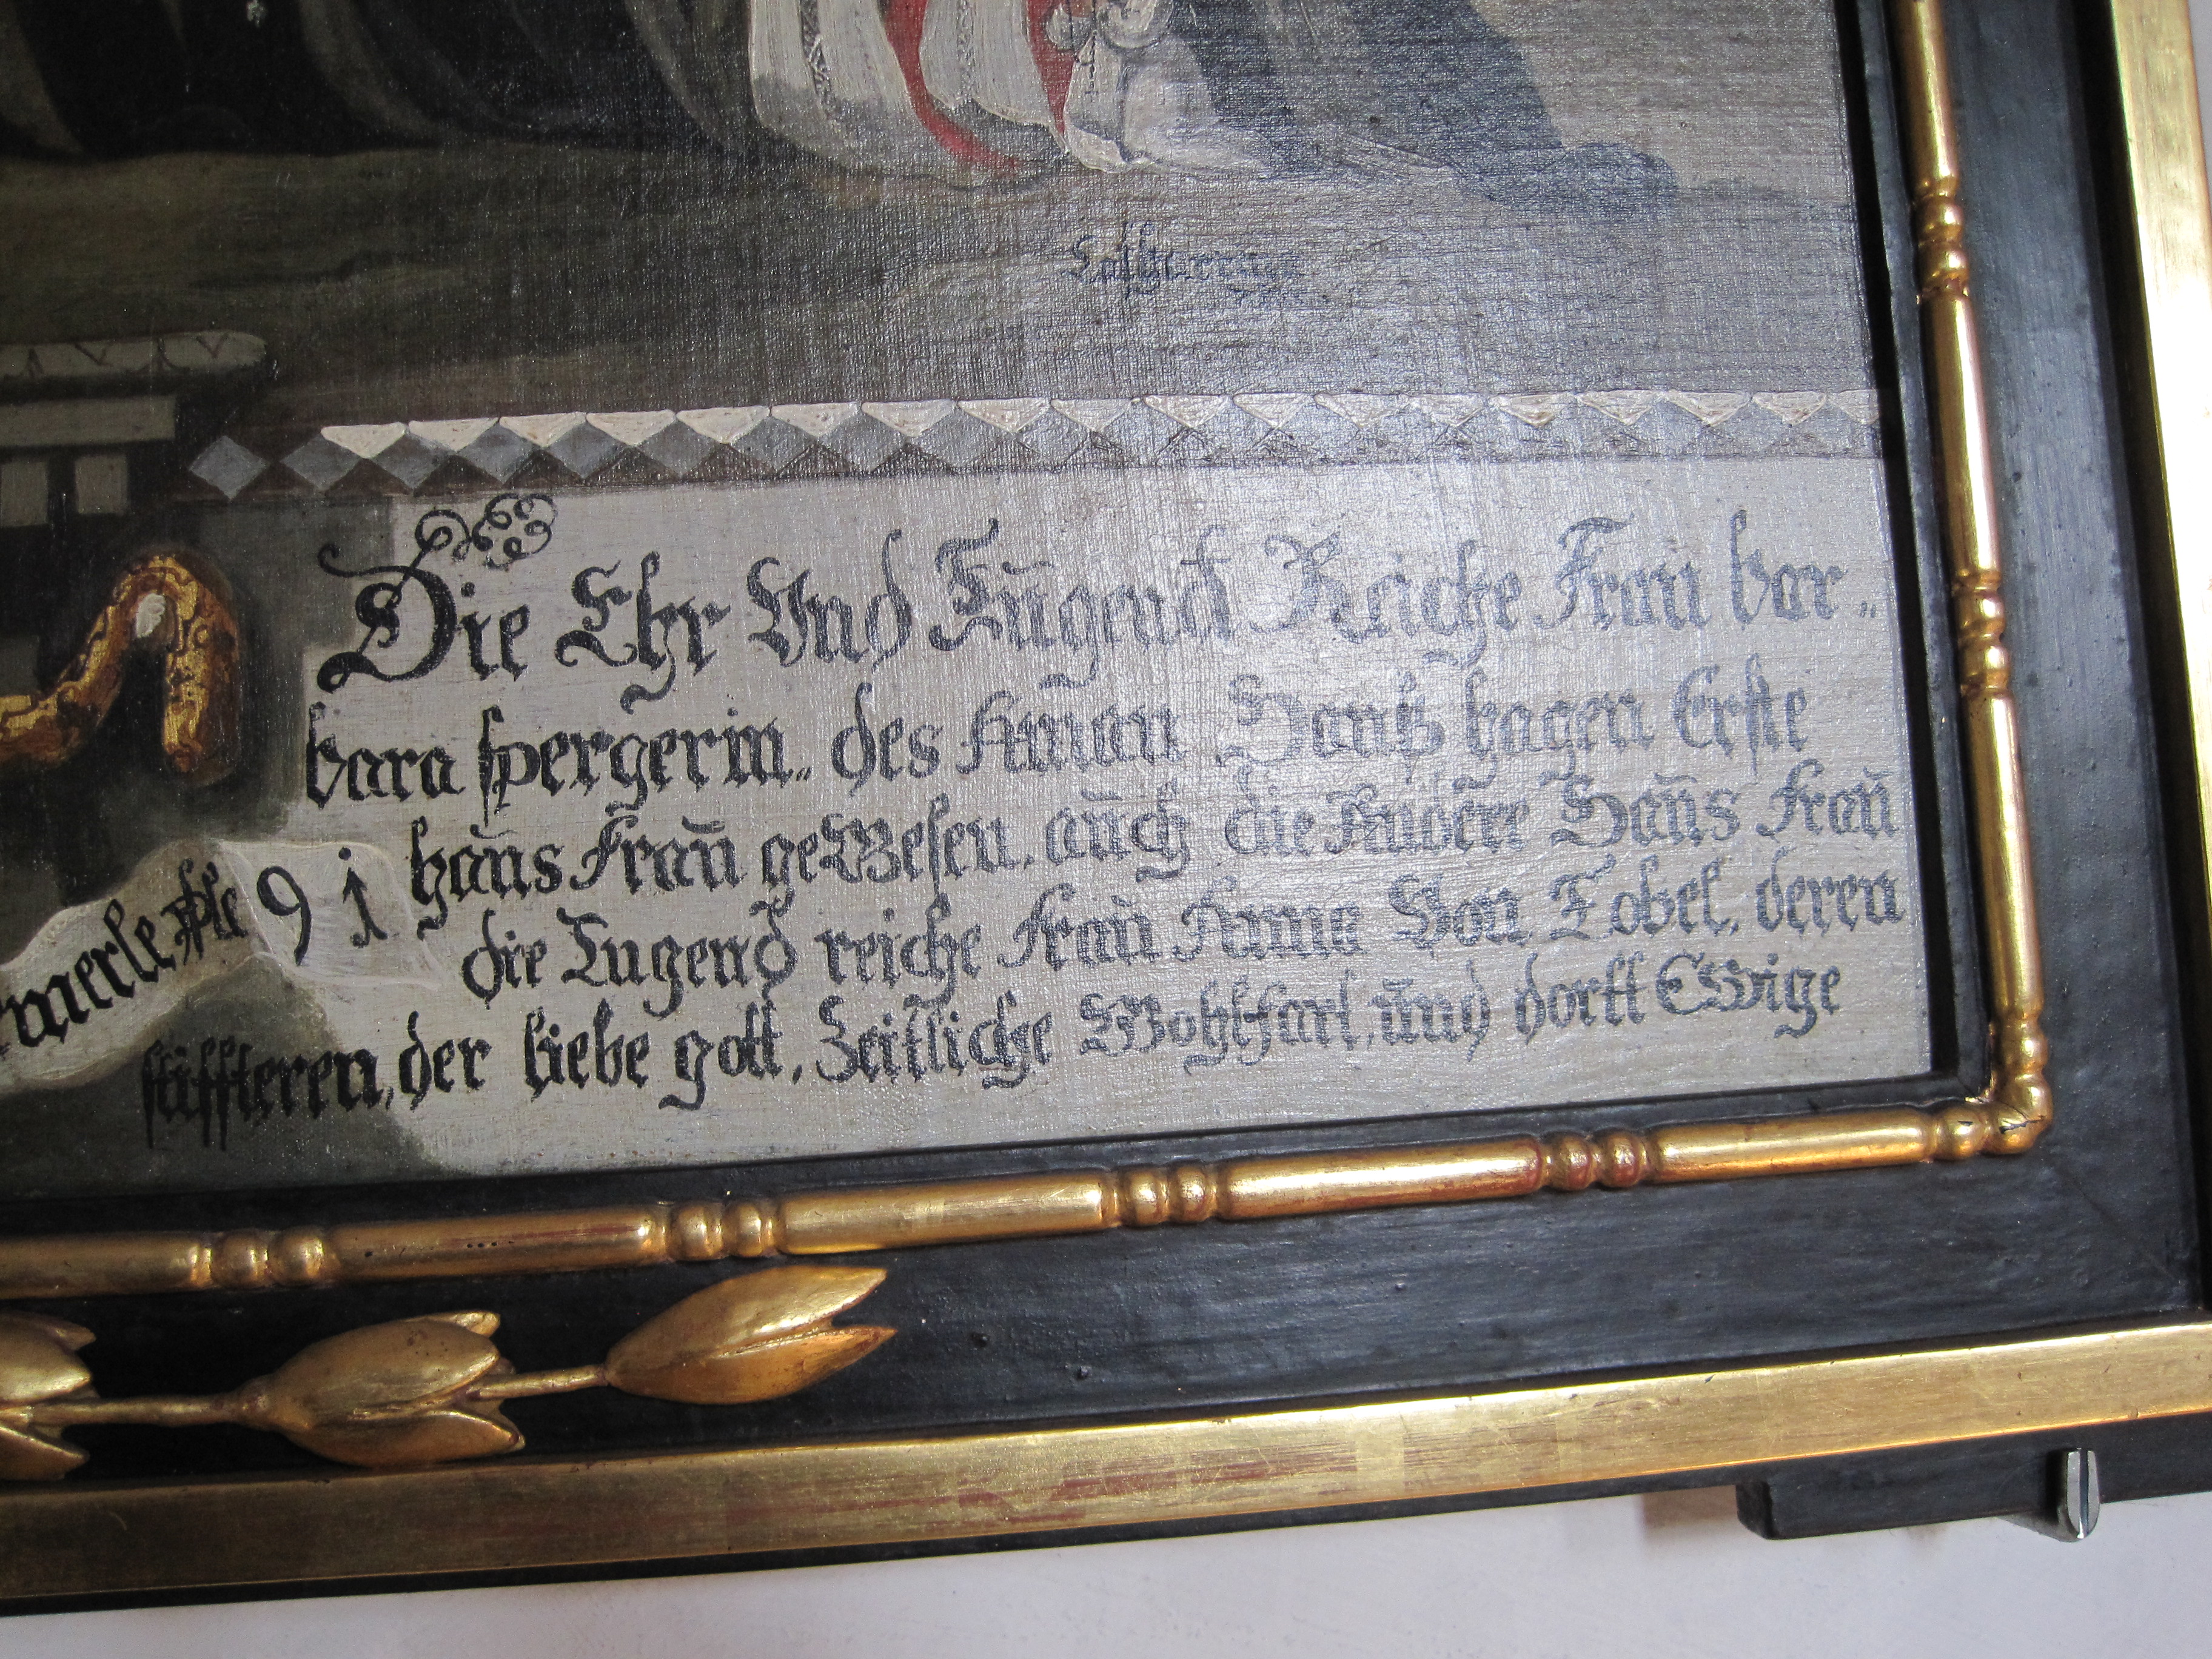 Die Ehr Und Tugend Reiche Frau bar„
bara spergerin„ des Aman Hanß hagen Erste
hauß Frau geWesen, auch die Andere Hauß Frau
die Tugend reiche Frau Anna Von Tobel, deren
stiffteren, der liebe gott, Zeitliche Wohlfart, und dortt EWige
91